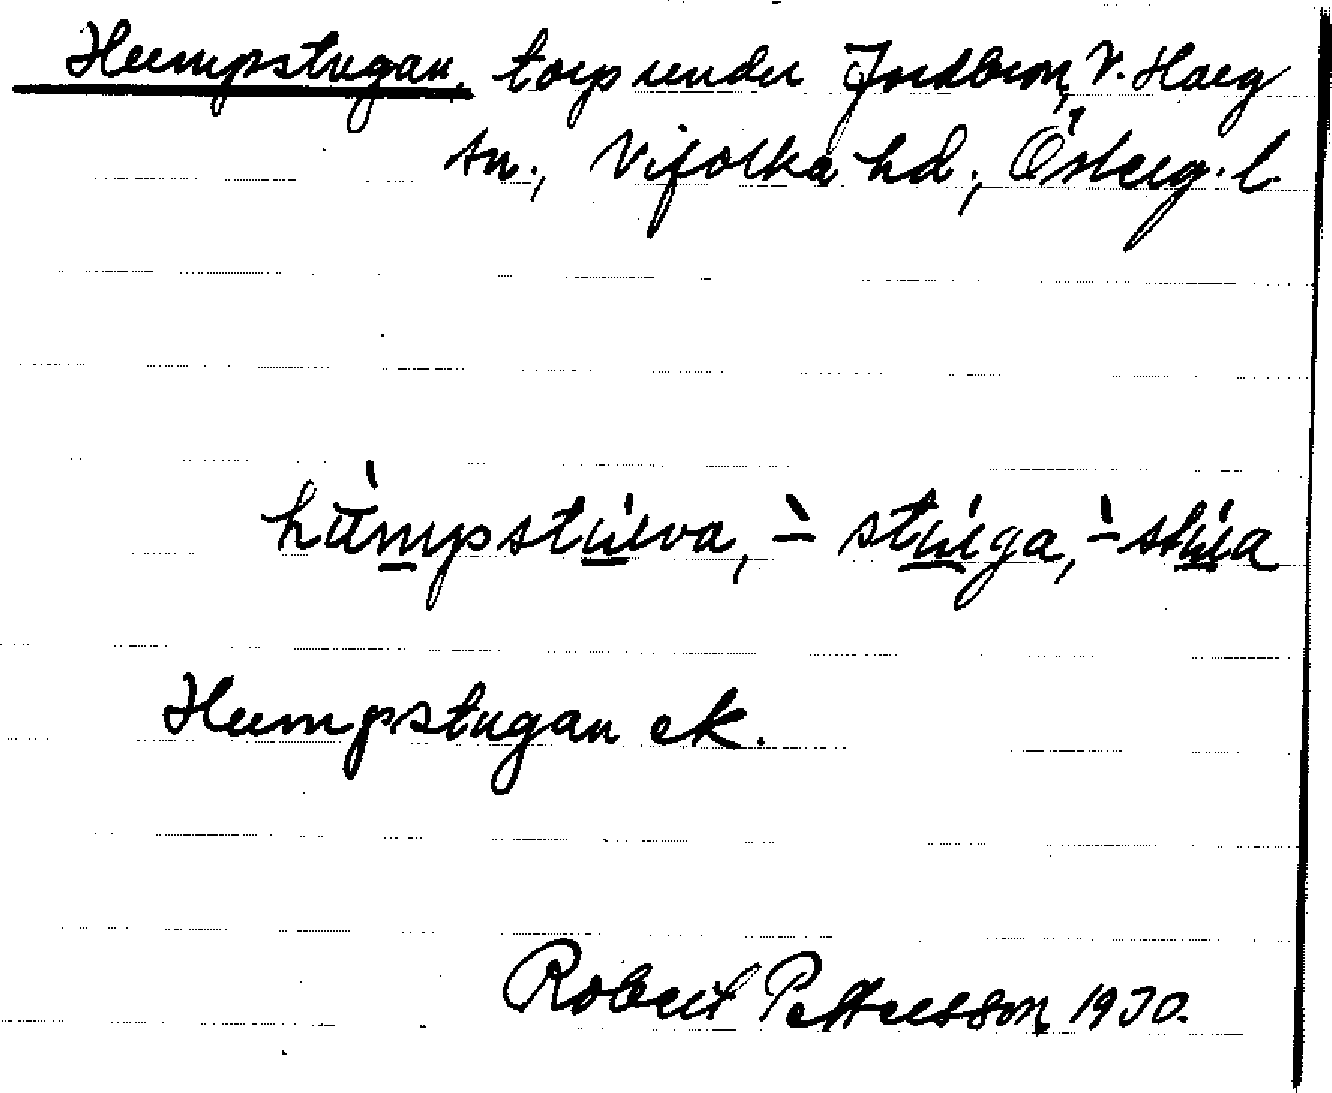 Humpstugan, torp under Jordbron, V. Harg
sn., Vifolka hd., Österg. l.
hùmpstúuva, -̀ stúuga, -̀ stúua
Humpstugan ek.
Robert Pettersson 1930.